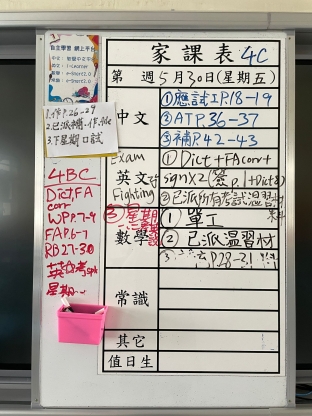 自主學習 網上平台
家課表 4C
第 週5月30日(星期五)
1.作P.26-29
3.下星期口試
中文
①應試IP.18-19
②ATP.36-37
③補P.42-43
Exam
Fighting
英文
①Dict+FAcorr+
sqnx2(簽P.1+Dict)
②已派所有考試溫習材料
4BC
Dict,FA
corr
WPP.7-9
FAP.6-7
RB27-30
星期
③星期
數學
①單工
②已派溫習材
③ P.28-31
常識
其它
值日生